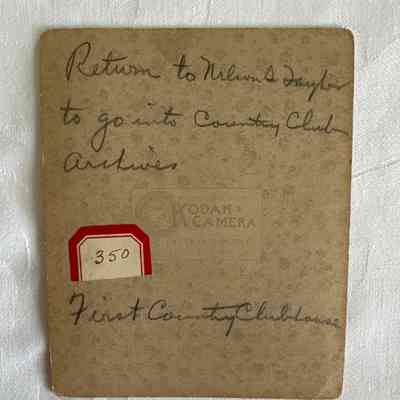 Return to Nelson S Taylor
to go into Country Club
Archives
KODAK
CAMERA
350
First Country Clubhouse